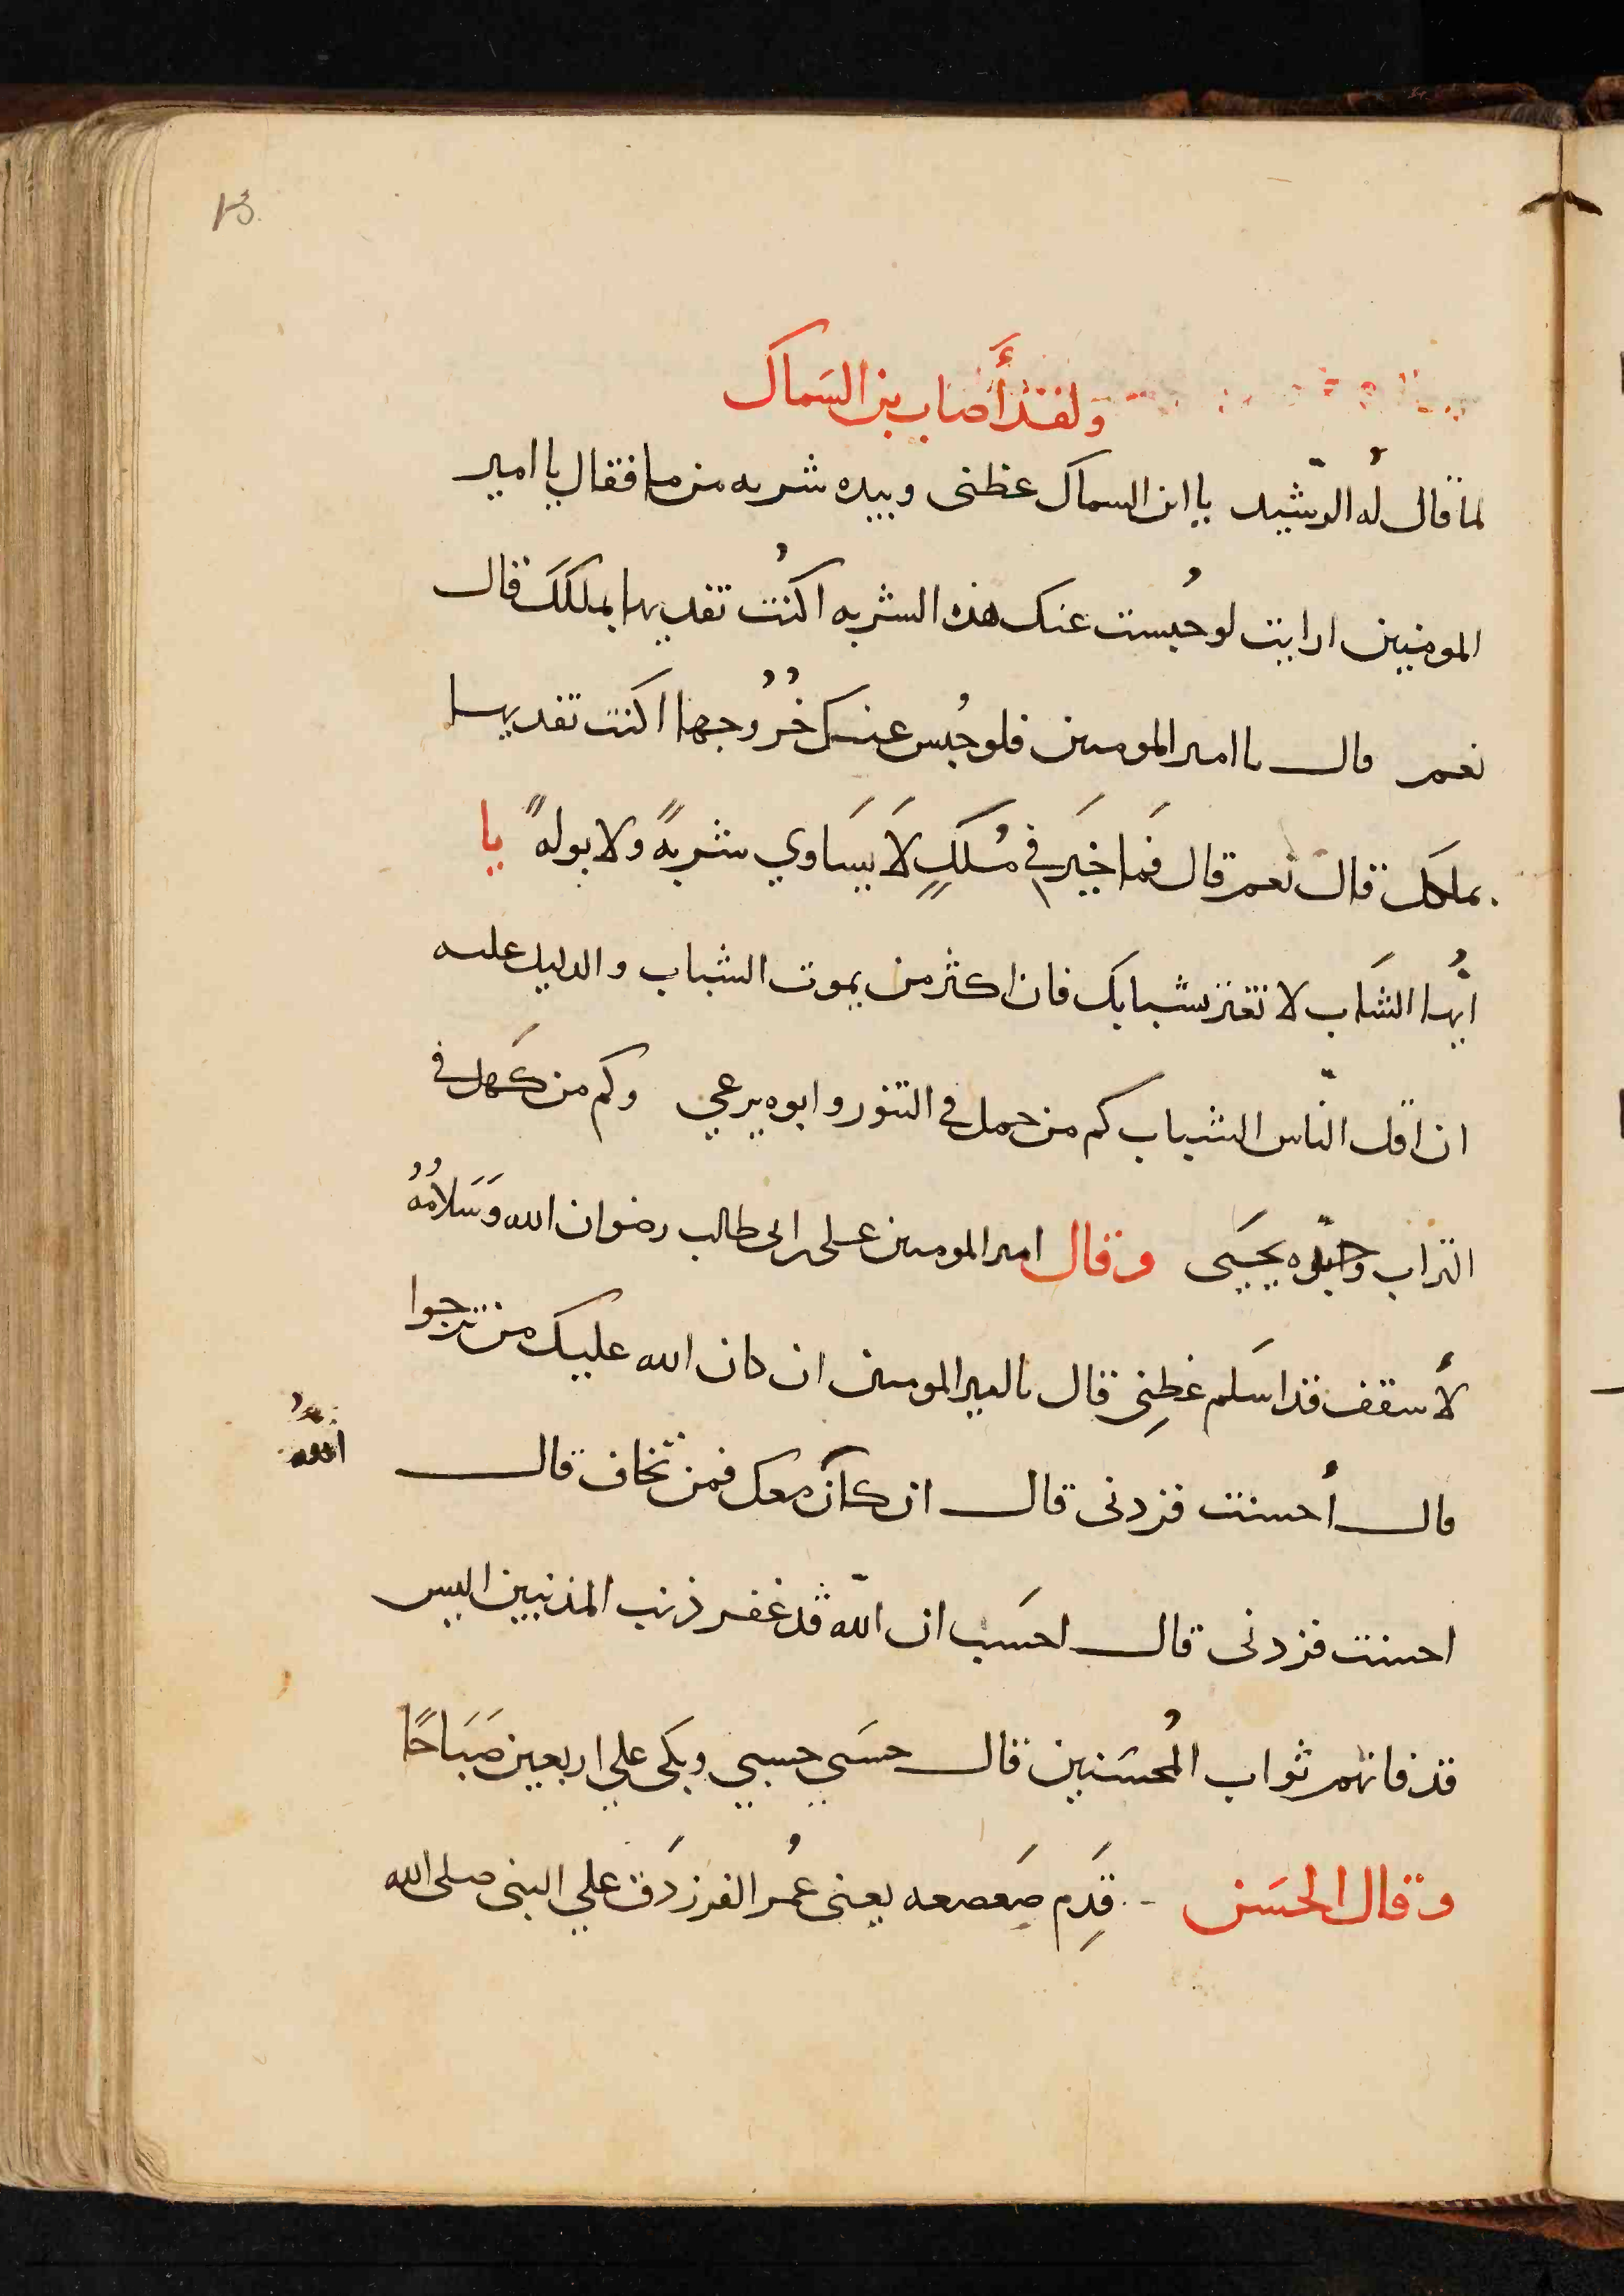 13
ولقد أصاب بن السماك
لما قال له الرشيد يا ابن السماك عظنى وبيده شربه من ما فقال يا امير
المومنيين ارايت لو حُبست عنك هذه الشربه اكنُت تفديها بملكك قال
نعم قال ياامير المومنين فلو حُبس عنك خُرُوجها اكنت تفديها
بملكك قال نعم قال فَما خيَر في مُلكٍ لَا يسَاوي شربةً ولا بولهً يا
ايُّها الشَاب لا تغتر بشبابك فان اكثر من يموت الشباب والدليل عليه
ان اقل النّاس الشباب كم من حمل في التنور وابوه يرعي وكم من كَهل في
التراب وجدّه يحيَى وقال امير المومنين على بن ابى طالب رضوان الله وَسَلامُهُ
لأسقف قد اسَلم عظِنى قال ياامير المومنين ان كان الله عليك من ترجوا
قال أحسنت فزدنى قال ان كان معك فمن تخاف قال
الله
احسنت فزدنى قال احسَب ان اللّه قد غفر ذنب المذنبين اليس
قد فاتهم ثواب المُحسَنين قال حسَبي حسبي وبكى علي اربعين صَبَاحًا
وقال الحسَن قَدِم صَعصعه يعنى عمُ الفرزدَق علي النبى صلى الله